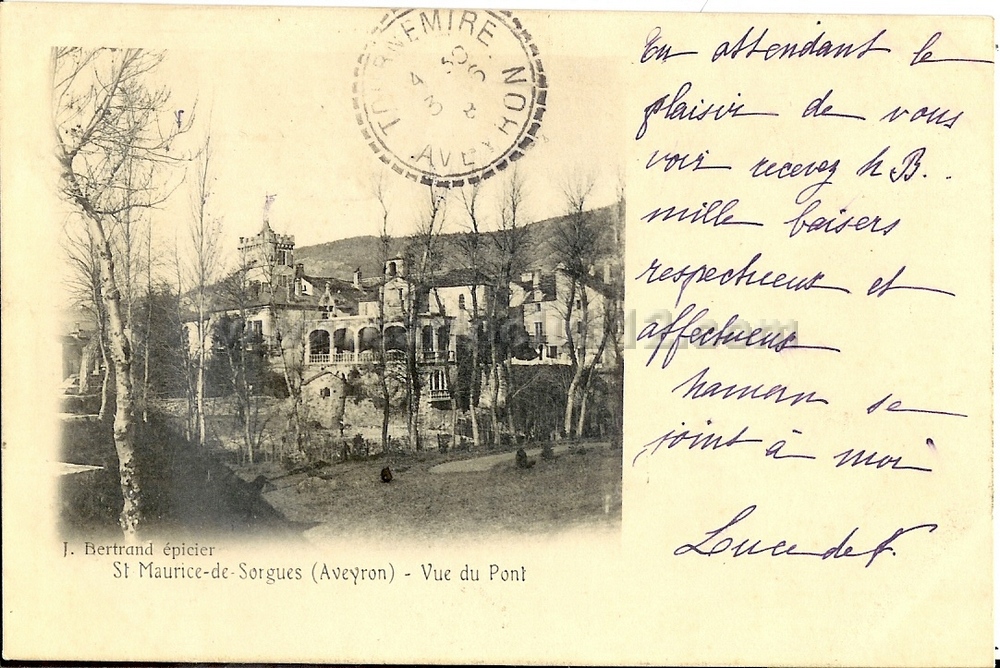 En attendant le
plaisir de vous
voir recevez M B.
mille baisers
respectueux et
affectueux
Maman se
joint à moi
Luce de F.
TOURNEMIRE
AVEYRON
J. Bertrand épicier
St Maurice-de-Sorgues (Aveyron) - Vue du Pont